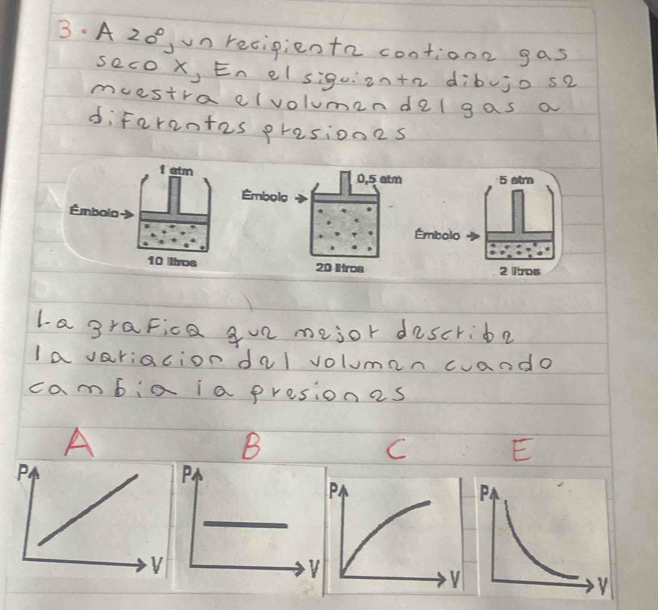 3. A 20°, un recipiente contiene gas
seco x, En el siguiente dibujo se
muestra el volumen del gas a
diferentes presiones
1 atm
Émbolo
10 litros
0,5 atm
Émbolo
20 litros
5 atm
Émbolo
2 litros
La grafica que mejor describe
la variacion del volumen cuando
cambia la presion es
A B C E
P V
P V
P V
P V